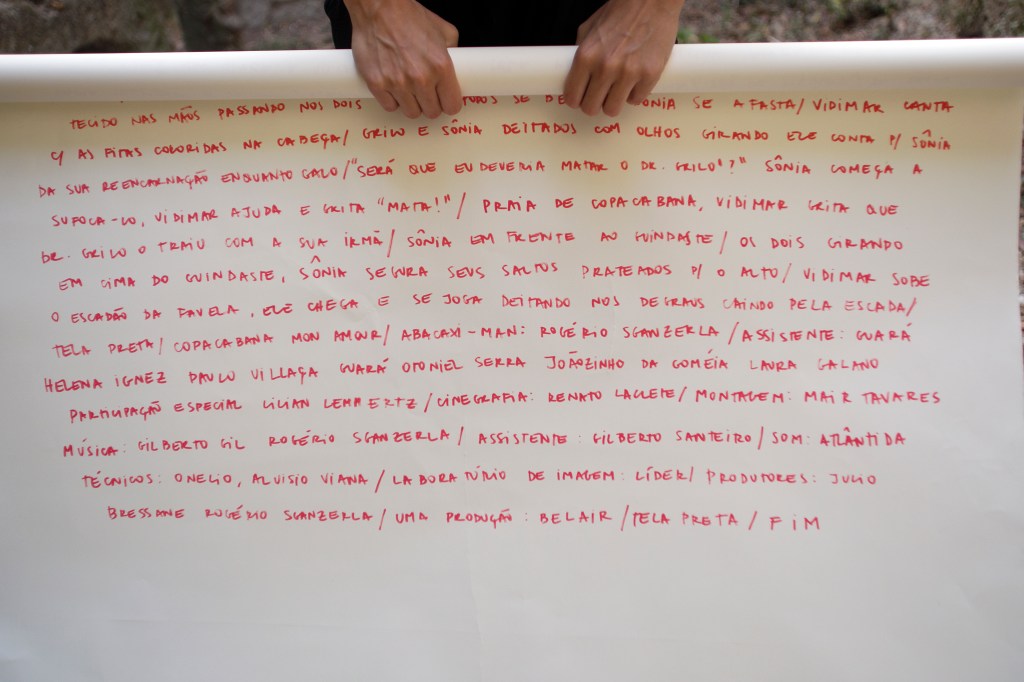 TECIDO NAS MÃOS PASSANDO NOS DOIS SE SE AFASTA/ VIDIMAR CANTA
C/ AS FITAS COLORIDAS NA CABEÇA/ GRILO E SÔNIA DEITADOS COM OLHOS GIRANDO ELE CONTA P/ SÔNIA
DA SUA REENCARNAÇÃO ENQUANTO GALO/"SERÁ QUE EU DEVERIA MATAR O DR. GRILO'?" SÔNIA COMEÇA A
SUFOCA-LO, VIDIMAR AJUDA E GRITA "MATA!"/ PRAIA DE COPACABANA, VIDIMAR GRITA QUE
DR. GRILO O TRAIU COM A SUA IRMÃ/ SÔNIA EM FRENTE AO GUINDASTE/ OS DOIS GIRANDO
EM CIMA DO GUINDASTE, SÔNIA SEGURA SEUS SALTOS PRATEADOS P/ O ALTO/ VIDIMAR SOBE
O ESCADÃO DA FAVELA, ELE CHEGA E SE JOGA DEITANDO NOS DEGRAUS CAINDO PELA ESCADA/
TELA PRETA/ COPACABANA MON AMOUR/ ABACAXI-MAN: ROGÉRIO SGANZERLA /ASSISTENTE: GUARÁ
HELENA IGNEZ PAULO VILLAÇA GUARÁ OTONIEL SERRA JOÃOZINHO DA GOMÉIA LAURA GALANO
PARTICIPAÇÃO ESPECIAL LILIAN LEMMERTZ/ CINEGRAFIA: RENATO LACLETE/ MONTAGEM: MAIR TAVARES
MÚSICA: GILBERTO GIL ROGÉRIO SGANZERLA/ ASSISTENTE: GILBERTO SANTEIRO/ SOM: ATLÂNTIDA
TÉCNICOS: ONELIO, ALUISIO VIANA/ LABORATÓRIO DE IMAGEM: LÍDER/ PRODUTORES: JULIO
BRESSANE ROGÉRIO SGANZERLA/ UMA PRODUÇÃO: BELAIR/TELA PRETA/ FIM